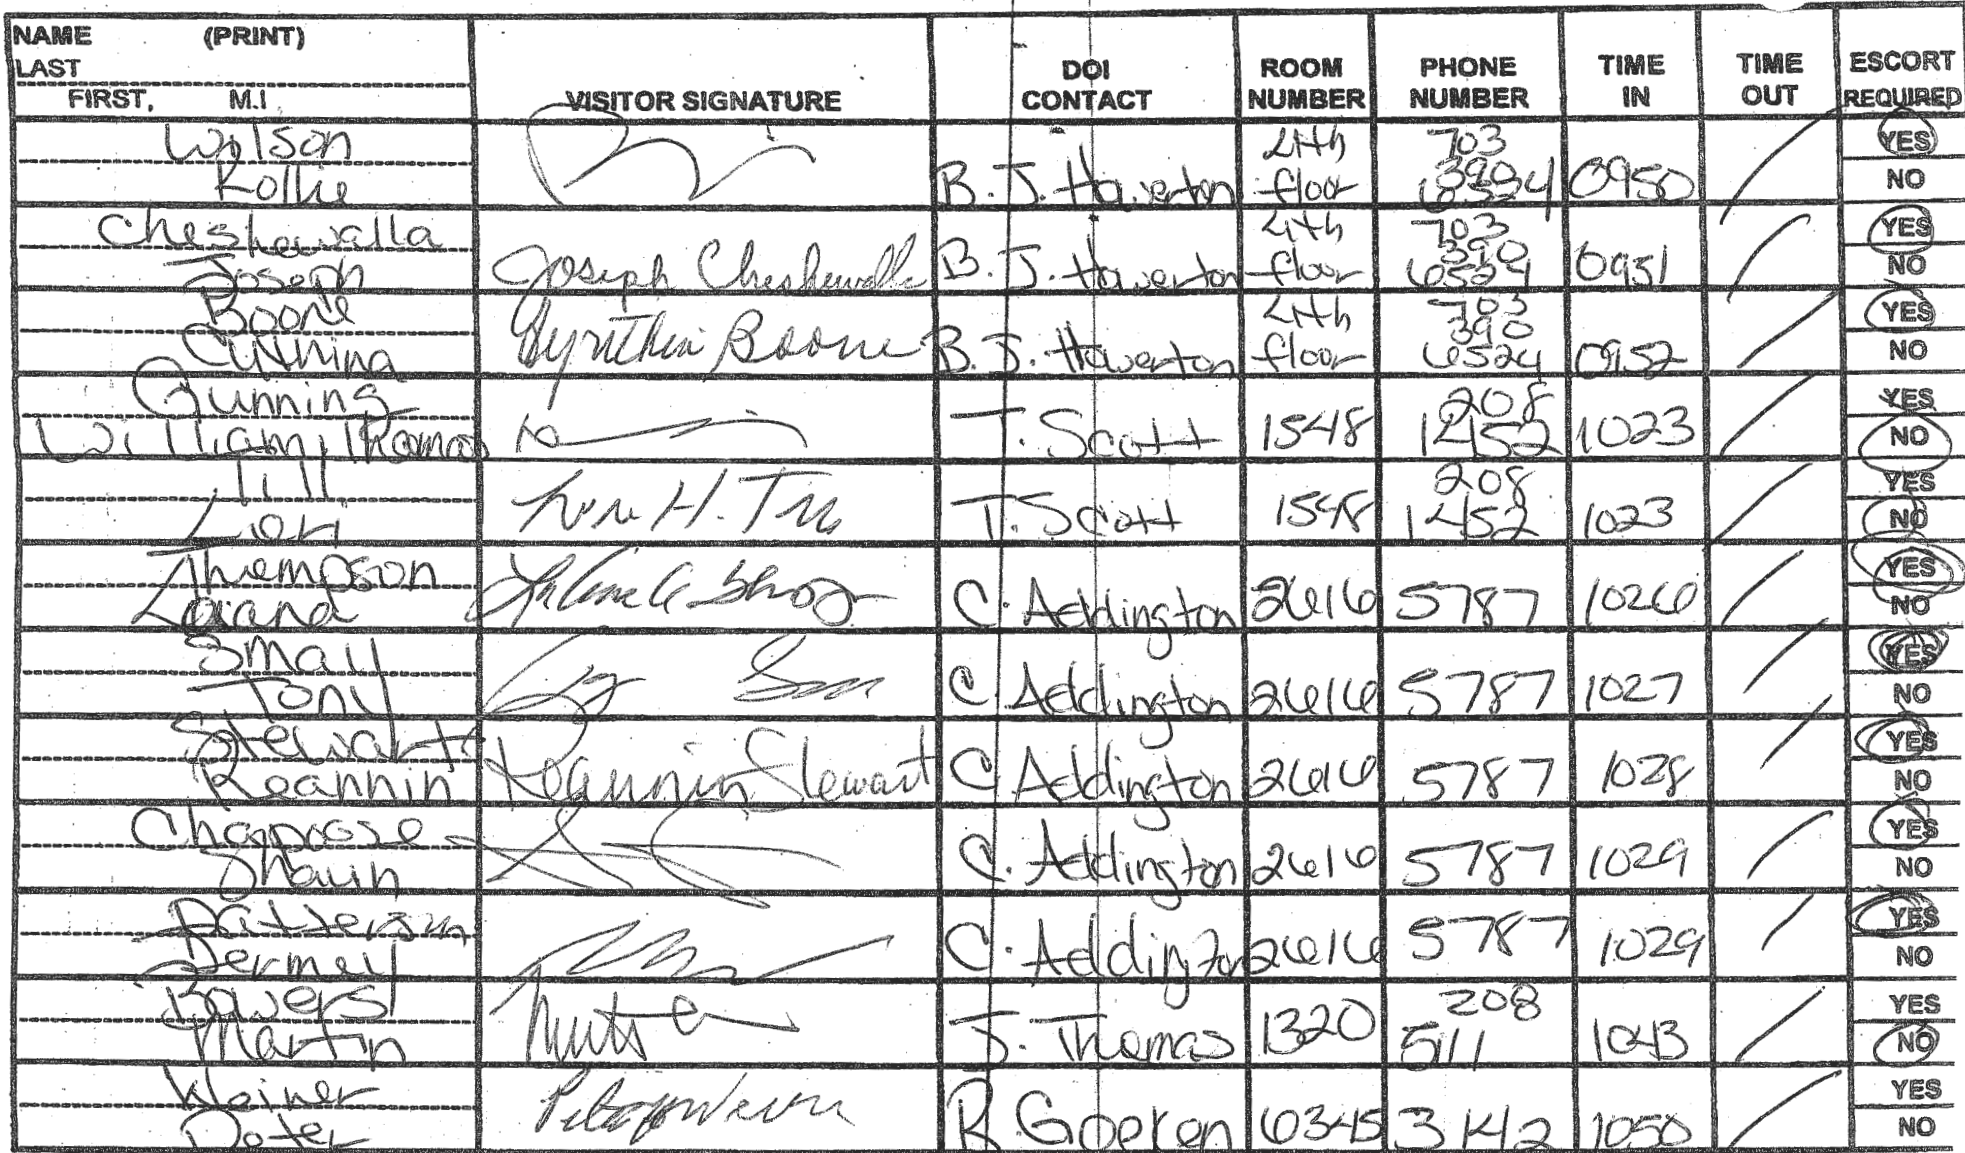 NAME (PRINT)
LAST
FIRST, M.I
VISITOR SIGNATURE
DOI
CONTACT
ROOM
NUMBER
PHONE
NUMBER
TIME
IN
TIME
OUT
ESCORT
REQUIRED
Wilson
Rollie
B. J. Howerton
4th
floor
703
390
6524
0950
YES
NO
Cheshewalla
Joseph
Joseph Cheshewalla
B. J. Howerton
4th
floor
703
390
6524
0951
YES
NO
Boone
Cynthia Boone
B. J. Howerton
4th
floor
703
390
6524
0952
YES
NO
Gunning
William, Thomas
T. Scott
1548
208
1452
1023
YES
NO
Till
Lori
T. Scott
1548
208
1452
1023
YES
NO
Thempson
C. Addington
2616
5787
1026
YES
NO
Small
Tony
C. Addington
2616
5787
1027
YES
NO
Stewart
Reannin
Reannin Stewart
C. Addington
2616
5787
1028
YES
NO
Chapoose
Shaun
C. Addington
2616
5787
1029
YES
NO
Patterson
C. Addington
2616
5787
1029
YES
NO
Bowers
Martin
J. Thomas
1320
208
5111
1043
YES
NO
Weiner
Peter
R Goeken
6345
3142
1050
YES
NO